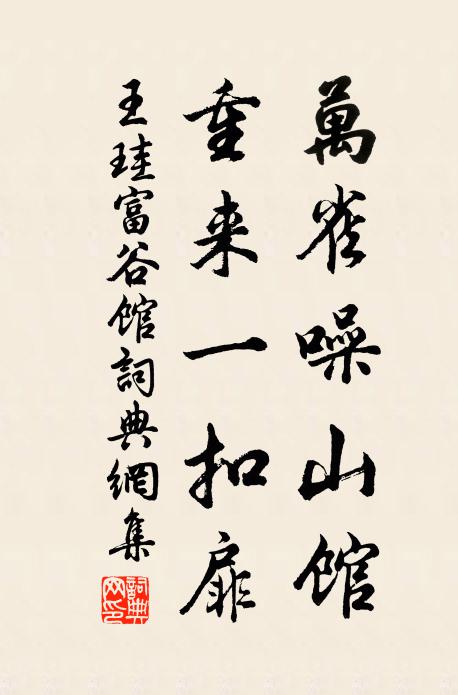 萬雀噪山館
重来一扣扉
王珪富谷館詞典網集
詞典網印